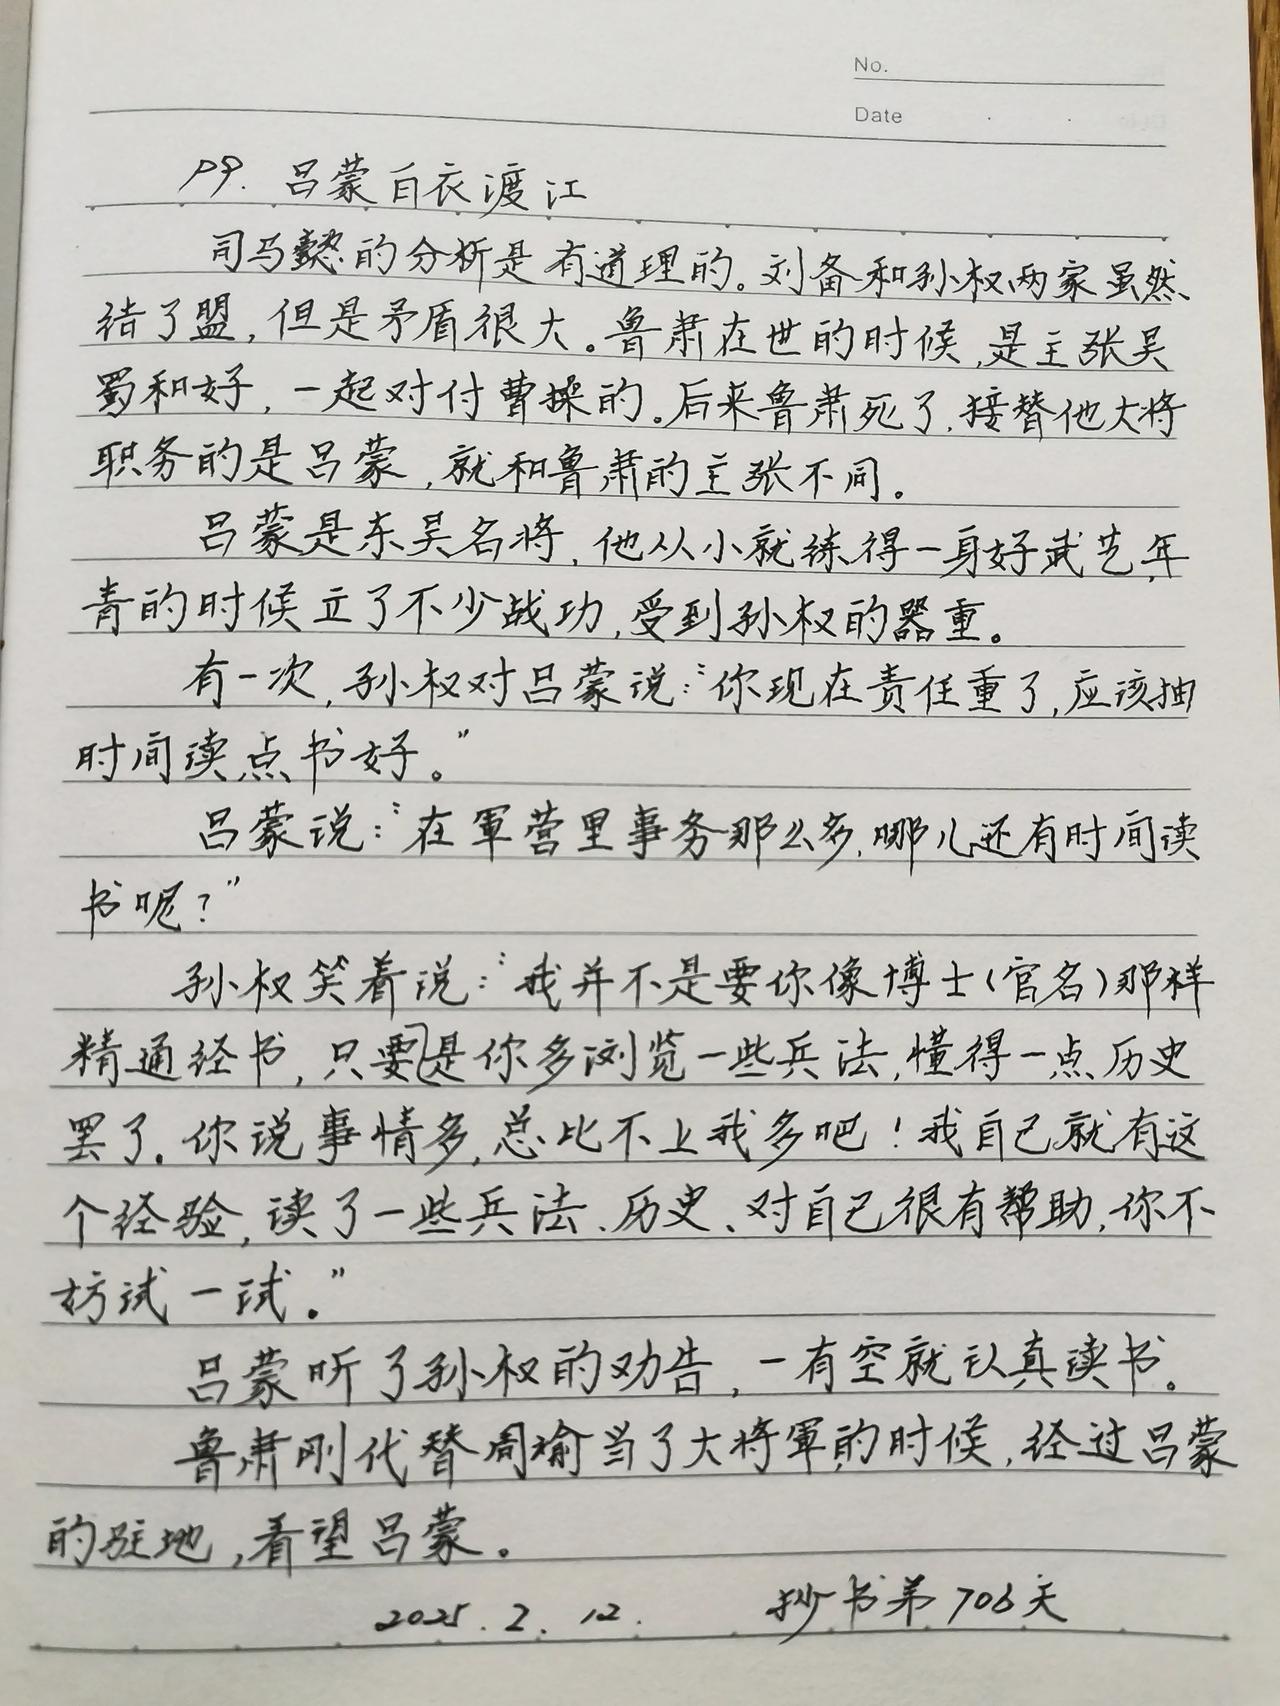 No.
Date
P9. 吕蒙白衣渡江
司马懿的分析是有道理的。刘备和孙权两家虽然
结了盟,但是矛盾很大。鲁肃在世的时候,是主张吴
蜀和好,一起对付曹操的。后来鲁肃死了,接替他大将
职务的是吕蒙,就和鲁肃的主张不同。
吕蒙是东吴名将,他从小就练得一身好武艺,年
青的时候立了不少战功,受到孙权的器重。
有一次,孙权对吕蒙说:“你现在责任重了,应该抽
时间读点书好。”
吕蒙说:“在軍营里事务那么多,哪儿还有时间读
书呢?”
孙权笑着说:“我并不是要你像博士(官名)那样
精通经书,只要是你多浏览一些兵法,懂得一点历史
罢了。你说事情多,总比不上我多吧!我自己就有这
个经验,读了一些兵法、历史、对自己很有帮助,你不
妨试一试。”
吕蒙听了孙权的劝告,一有空就认真读书。
鲁肃刚代替周瑜当了大将軍的时候,经过吕蒙
的驻地,看望吕蒙。
2025.2.12. 抄书第706天